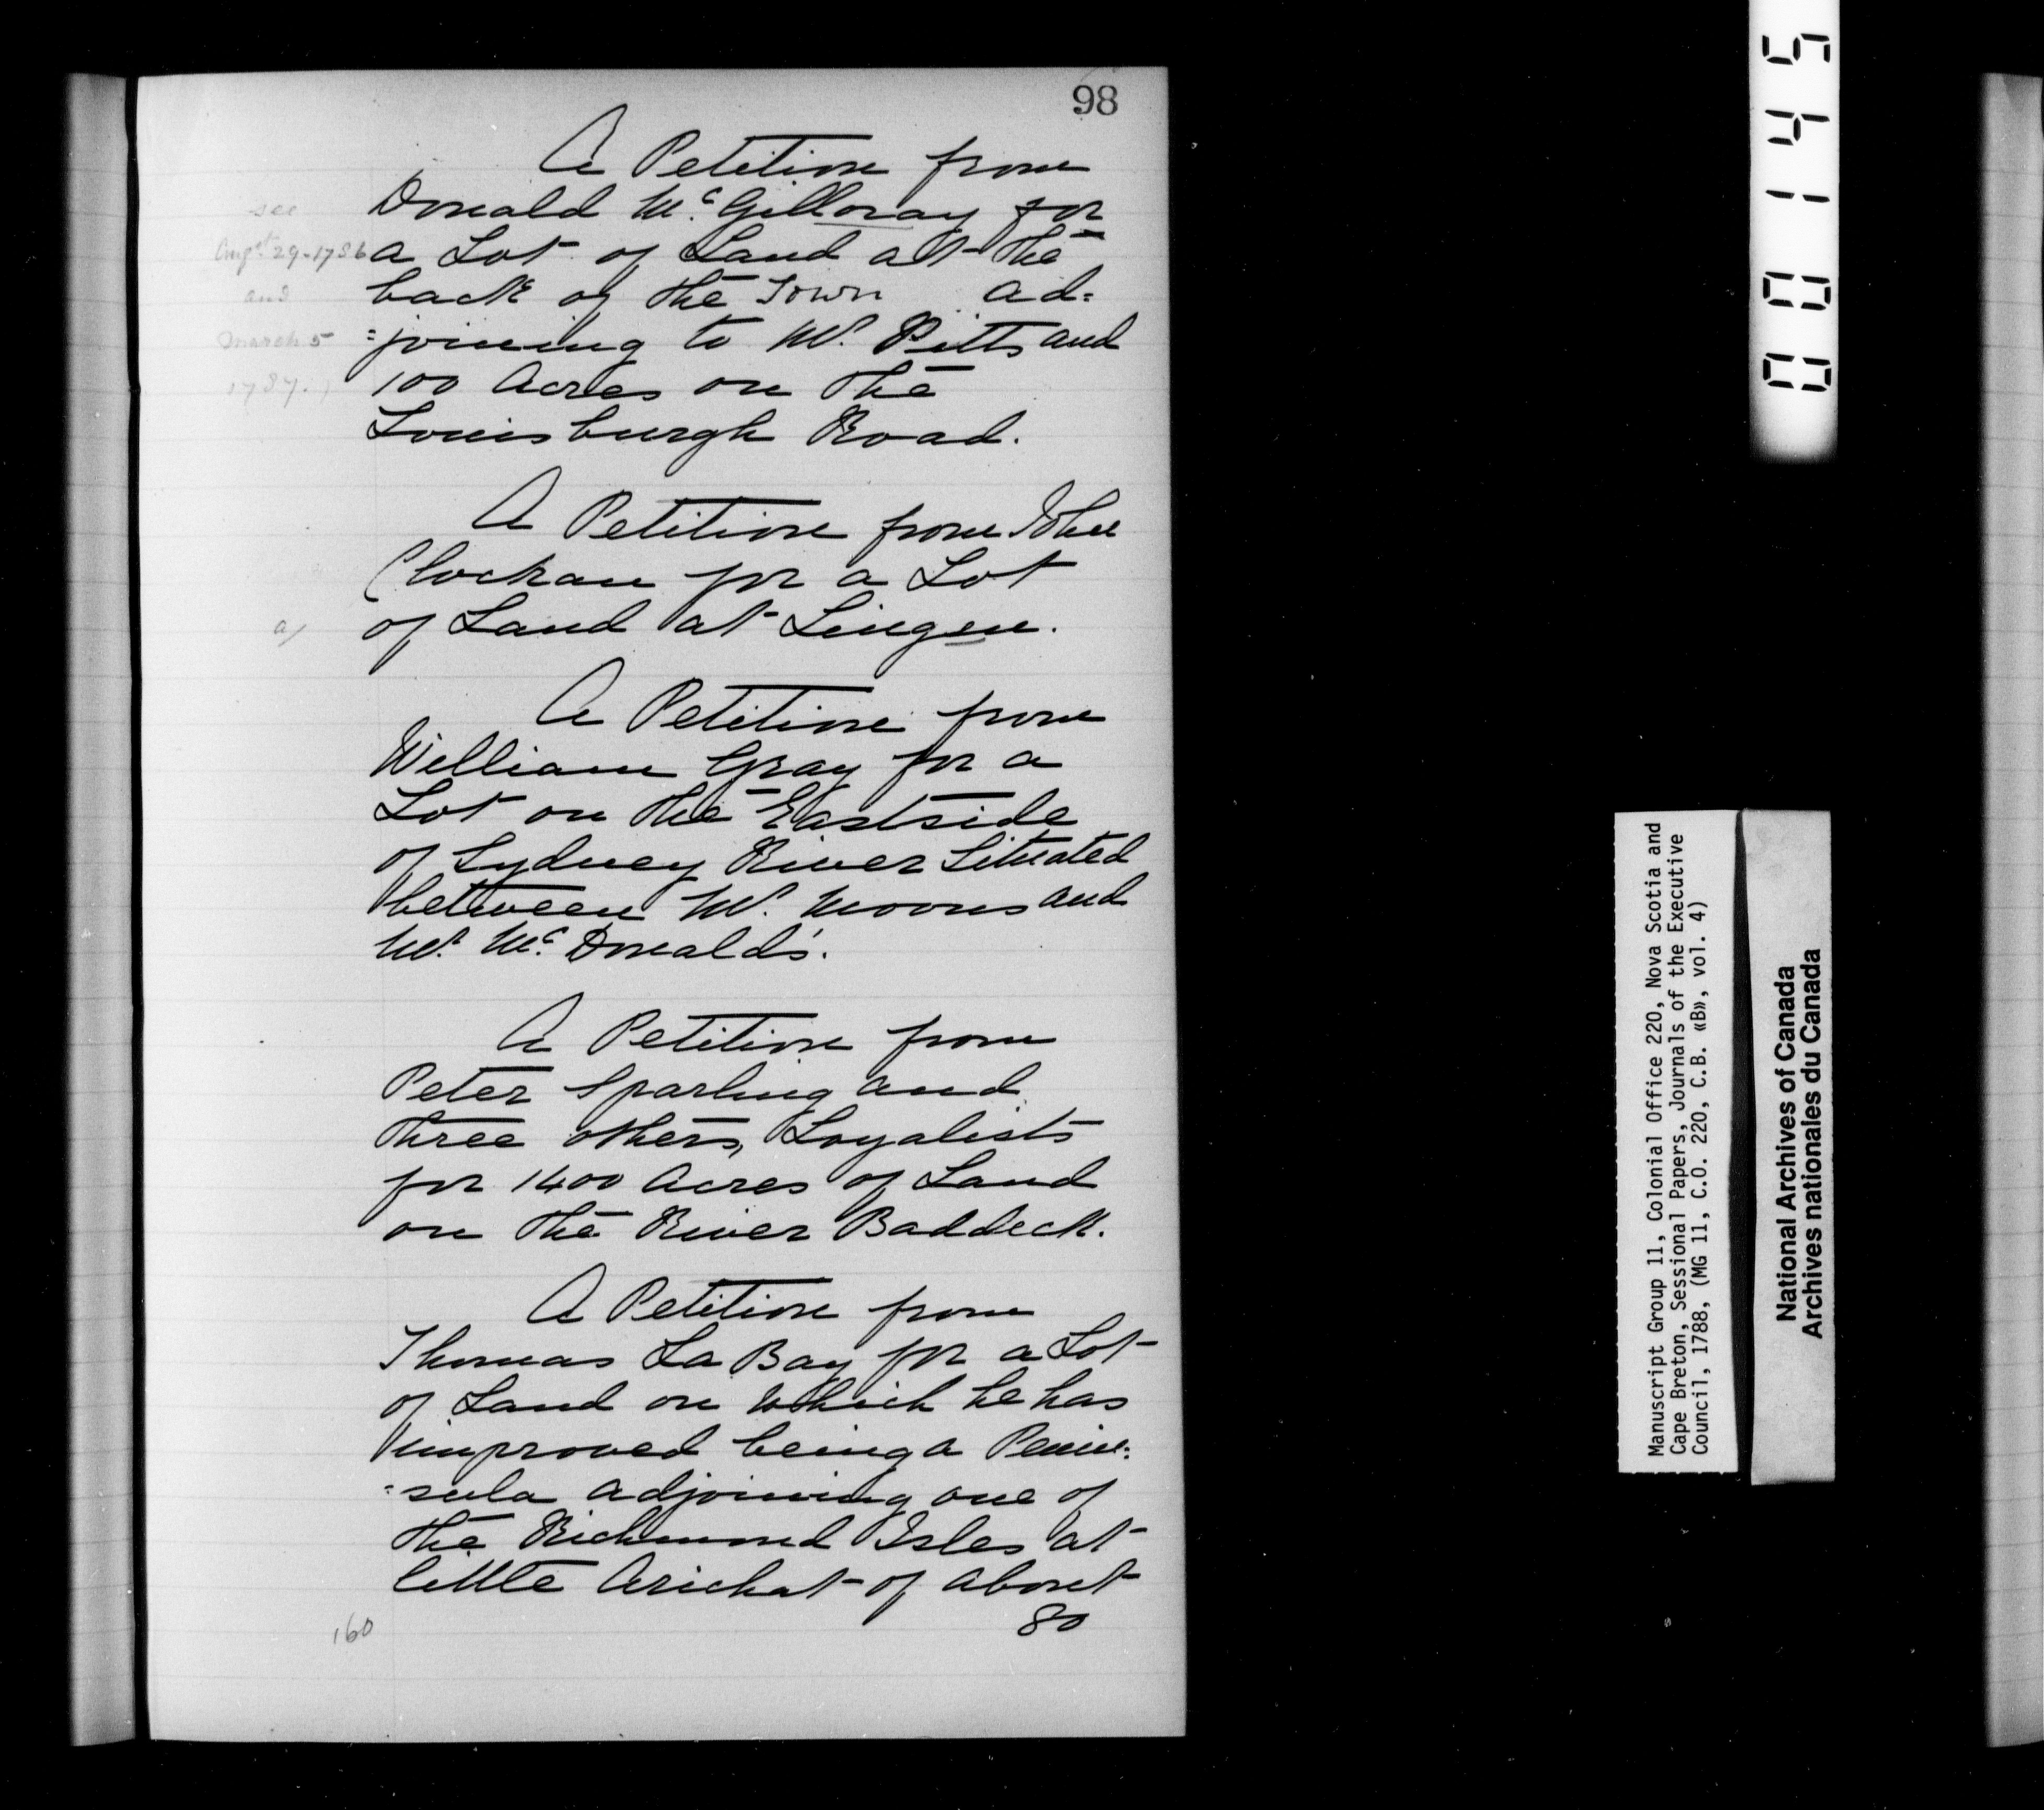 98
A Petition from
Donald Mc. Gilloray for
a Lot of Land at the
back of the Town ad=
=joining to Mr. Pitts and
100 Acres on the
Louisburgh Road.
see
Augst 29-1786
and
March 5
1787.)
A Petition from John
Clockan for a Lot
of Land at Lingen.
a/
A Petition from
William Gray for a
Lot on the Eastside
of Sydney River Situated
between Mr. Moores and
Mr. Mc. Donald's.
A Petition from
Peter Sparling and
three others, Loyalists
for 1400 Acres of Land
on the River Baddeck.
A Petition from
Thomas La Bay for a Lot
of Land on which he has
improved being a Penin=
=sula adjoining one of
the Richmond Isles at
little Arichat of about
80
160
00145
Manuscript Group 11, Colonial Office 220, Nova Scotia and
Cape Breton, Sessional Papers, Journals of the Executive
Council, 1788, (MG 11, C.O. 220, C.B. «B», vol. 4)
National Archives of Canada
Archives nationales du Canada